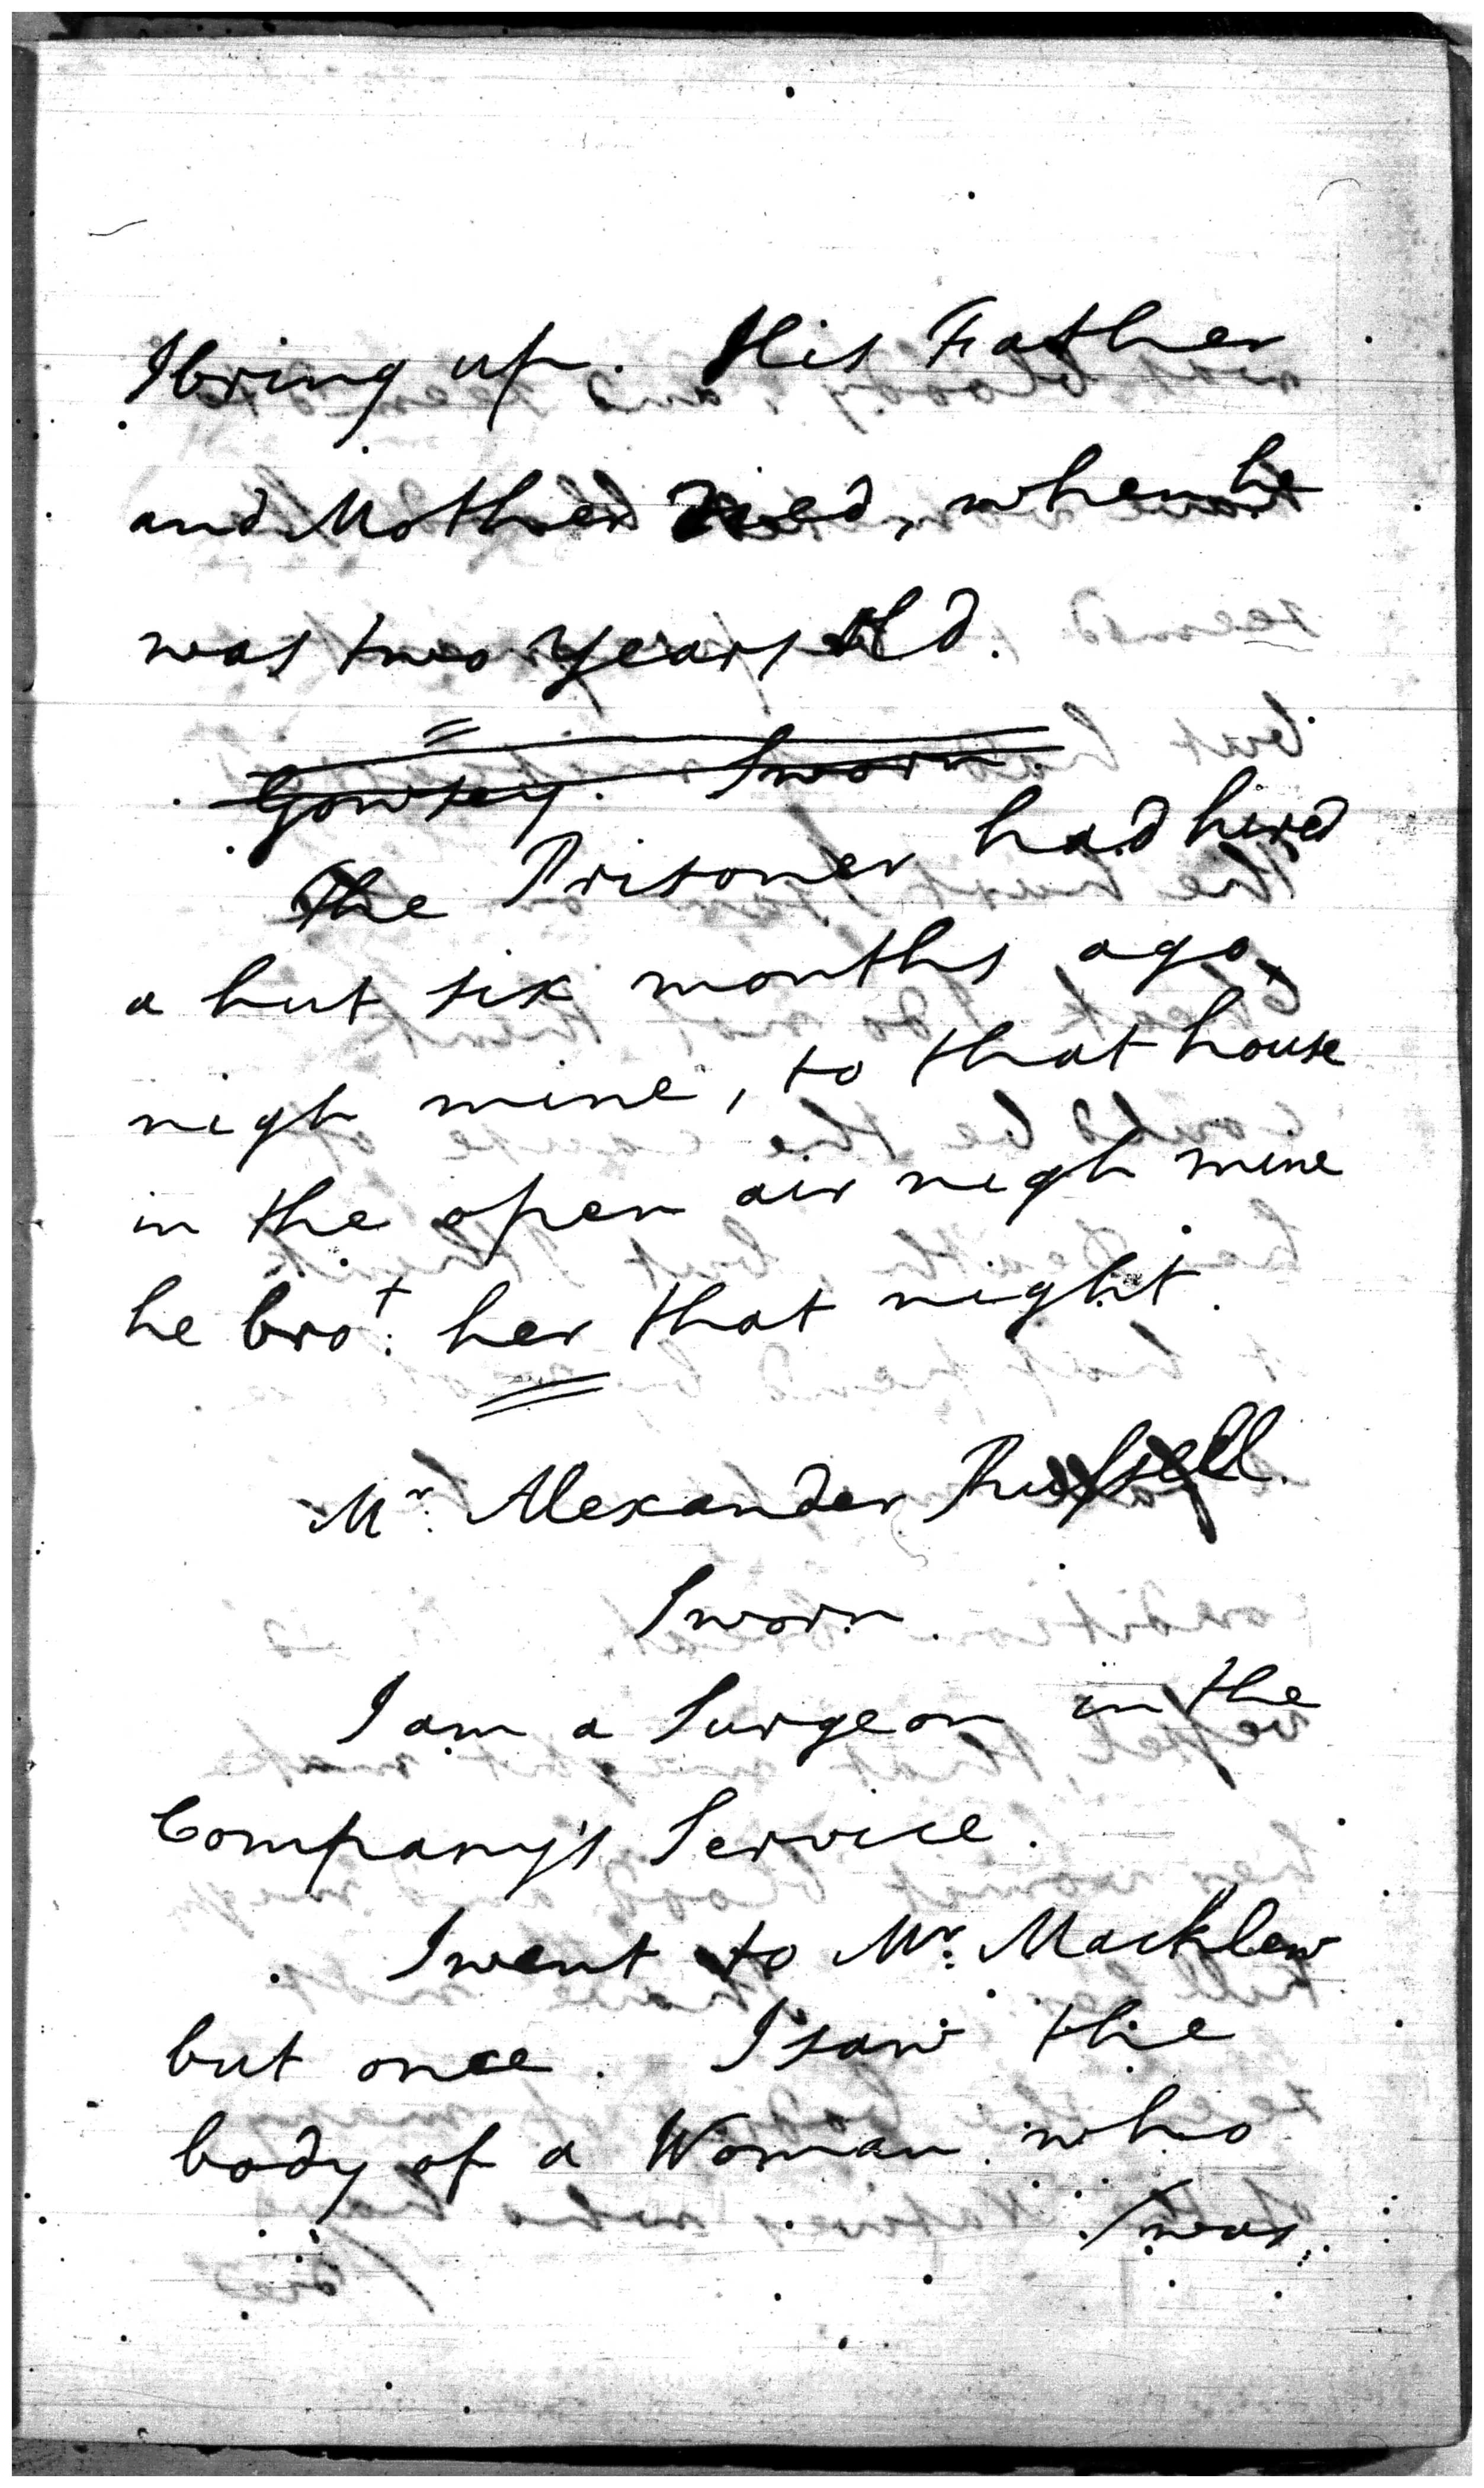 I bring up. His Father
and Mother died, when he
was two years old.
Gowsey. Sworn.
The Prisoner had hired
a hut six months ago
nigh mine, to that house
in the open air nigh mine
he bro.t her that night.
Mr. Alexander Russell.
Sworn.
I am a Surgeon in the
Company's Service.
I went to Mr. Macklew
but once. I saw the
body of a Woman who
/was